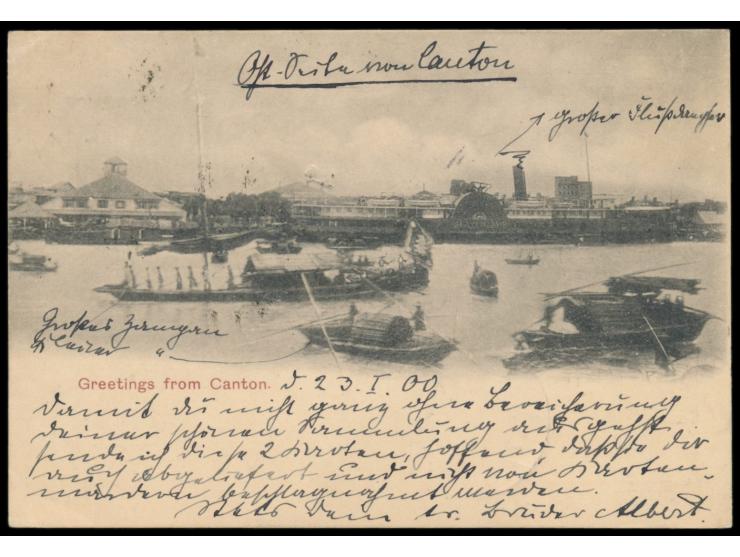 Ost-Seite von Canton
großer Flußdampfer
Großes Zampan
Kleiner "
Greetings from Canton. d. 23. I. 00
Damit du nicht ganz ohne Bereicherung
deiner schönen Sammlung ausgehst
sende ich diese 2 Karten, hoffend daß sie dir
auch abgeliefert und nicht von Karten-
mardern beschlagnahmt werden.
Stets dein tr. Bruder Albert.